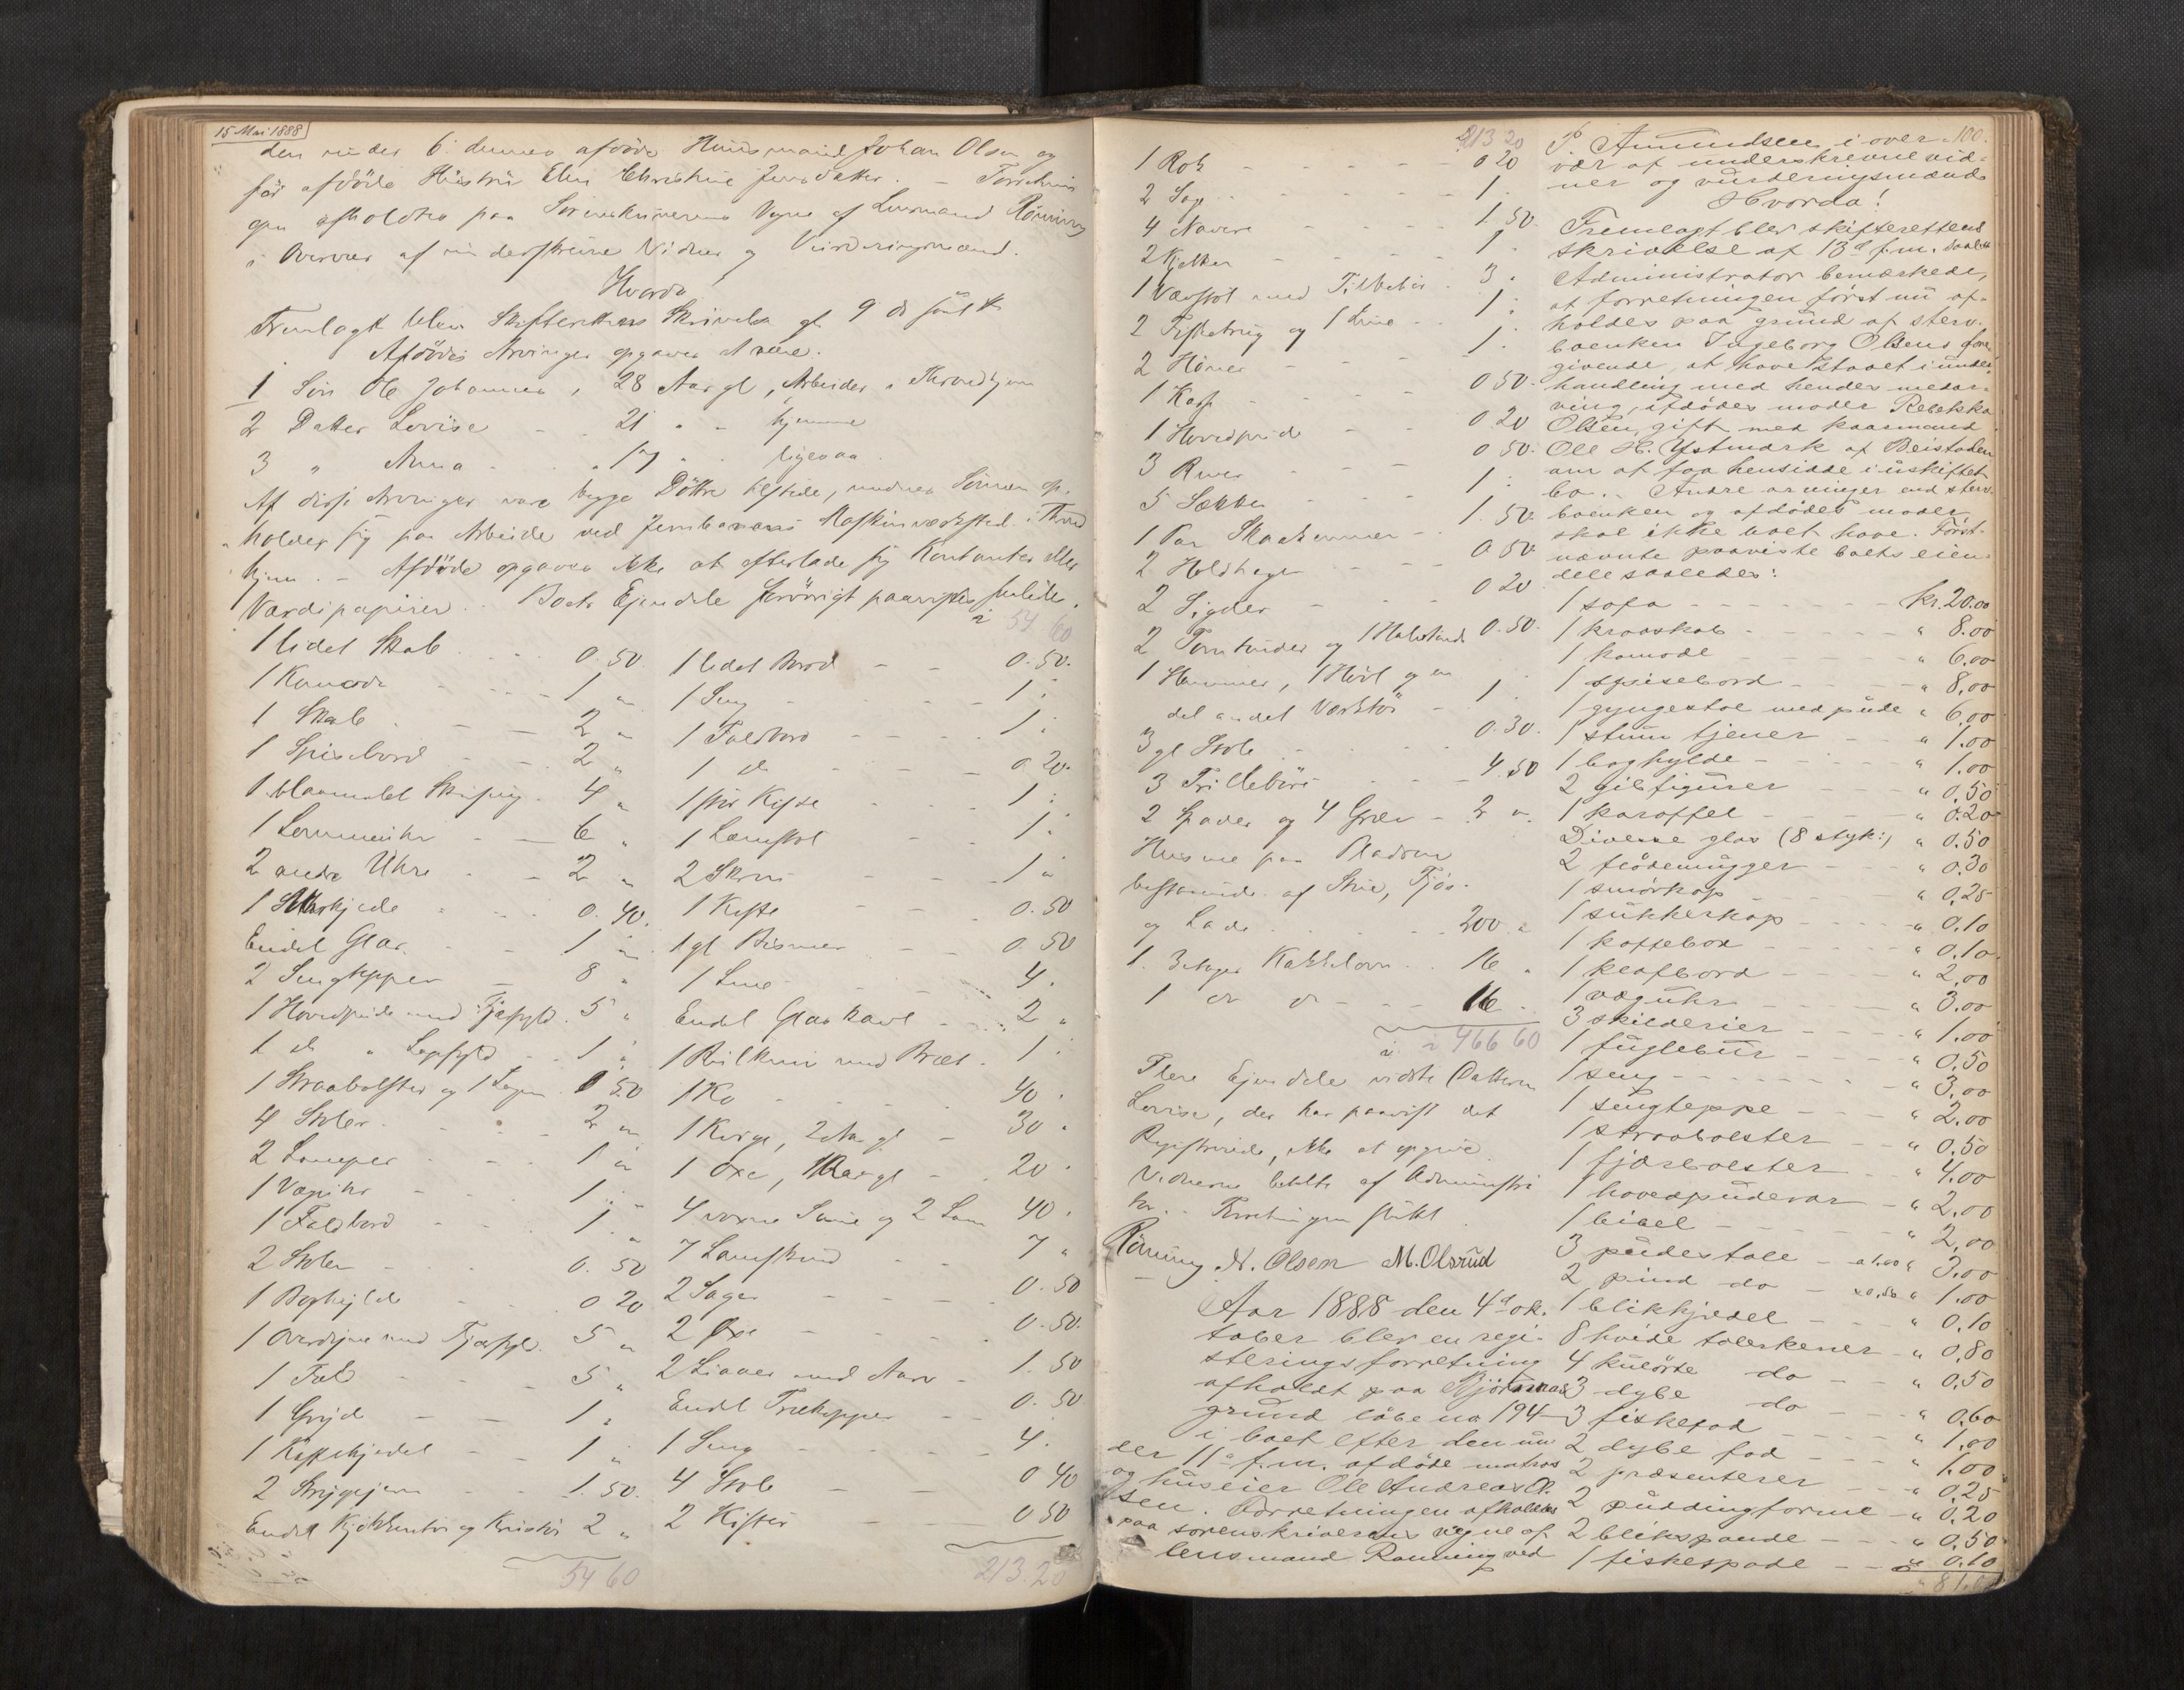 15 Mai 1888
den under 6 dennes afdöde Huusmand Johan Olsen og
för afdöde Hustru Elen Christine Jensdatter. – Forretnin
gen afholdtes paa Sorenskriverens Vegne af Lensmand Rönning
i Overvær af underskrevne Vidner og Vurderingsmænd.
Hvorda
Fremlagt blev Skifterettens Skrivelse af 9 ds
Afdödes Arvinger opgaves at være.
1 Sön Ole Johannes, 28 Aar gl, Arbeider i Throndhjem
2 Datter Lovise – – 21 " – hjemme
3 " Anna – – 17 " ligesaa
Af disse Arvinger vare begge Döttre tilstede, medens Sönnen op-
holder sig paa Arbeide ved Jernbanens Maskinværksted i Thrond
hjem. – Afdöde opgaves ikke at efterlade sig Kontanter eller
Værdipapirer. Boets Ejendele forövrigt paavistes saaledes.
1 lidet Skab 0.50
1 Komode 1 "
1 Skab 2 "
1 Spisebord 2 "
1 blaamalet 4 "
1 Lommeuhr 6 "
2 andre Uhre 2 "
1 kjede 0.40
Endel Glas 1 "
2 Sengtepper 8 "
1 Hovedpude med Fjæfyld 5 "
1 do " 1 "
1 Straabolster og 1 Lagen 0 50
4 Stoler 2 "
2 Lamper 1 "
1 Væguhr 1 "
1 Foldbord 1 "
2 Stoler 0.50
1 Boghylde 0 20
1 Overdyne med Fjæfyld 5 "
1 Fæld 5 "
1 Gryde 1 "
1 Kaffekjedel 1 "
2 Strygejern 1.50
Endel Kjökkentöi og Kristöi 2 "
54 60
54 60
1 lidet Bord 0.50
1 Seng 1 "
1 Foldbord 1 "
1 do 0.20
1 stor Kiste 1 "
1 Lænstol 1 "
2 Skrin 1 "
1 Kiste 0.50
1 gl Bismer 0.50
1 4 "
Endel Glas 2 "
1 Rulkniv med Bræt 1 "
1 Ko 40 "
1 Kvige, 2 Aar gl 30 "
1 Oxe, 1 Aar gl 20 "
4 voxne Sauer og 2 Lam 40 "
7 Lamskind 7 "
2 Sager 0.50
2 Öxe 0.50
2 Liaaer med 1.50
Endel Trækopper 0.50
1 Seng 4 "
4 Stole 0 40
2 Kister 0 50
213.20
213 20
1 Rok 0 20
2 Sag 1 "
4 Navere 1.50
2 Kjelker 1 "
1 Vævstol med Tilbehör 3 "
2 og 1 Line 1 "
2 Höner 1 "
1 Karf 0 50
1 Hovedpude 0 20
3 River 0 50
5 Sækker 1 "
1 Par 1.50
2 0.50
2 Sigder 0 20
2 Torntönder og 1 Halvtönde 0.50
1 Hammer, 1 Hövl og en
del andet Værktöi 1 "
3 gl Stole 0.30
3 Trilleböre 4.50
2 Spader og 4 Grev 2 "
Husene paa Pladsen
bestaaende af Stue, Fjös
og Lade 200 "
1 3 etages Kakkelovn 16 "
1 do do 16 "
466 60
Flere Ejendele vidste Datteren
Lovise, der har paavist det
Registrerede, ikke at opgive
Vidnerne betalte af Administra
tor. – Forretningen sluttet
Rönning N. Olsen M. Olsrud
Aar 1888 den 4de ok-
tober blev en regi-
steringsforretning
afholdt paa Björnnæs
grund löbe no 194
i boet efter den un
der 11te f.m. afdöde matros
og huseier Ole Andreas Ol-
sen. Forretningen afholdtes
paa sorenskriverens vegne af
lensmand Ronning ved
100.
P Amundsen i over-
vær af underskrevne vid-
ner og vurderingsmænd.
Hvorda!
Fremlagt blev skifterettens
skrivelse af 13de f.m.
Administrator bemærkede,
at forretningen först nu af-
holdes paa grund af sterv-
boenken Ingeborg Olsens fore
givende, at have staaet i under
handling med hendes medar-
ving, afdödes moder Rebekka
Olsen, gift med kaarmand
Ole H. Ystmark af Beistaden
om at faa hensidde i uskiftet
bo. – Andre arvinger end sterv-
boenken og afdödes moder
skal ikke boet have. Först-
nævnte paaviste boets eien-
dele saaledes:
1 sofa kr. 20.00
1 kraaskab " 8.00
1 komode " 6.00
1 spisebord " 8.00
1 gyngestol med pude " 6.00
1 stum tjener " 1.00
1 boghylde " 1.00
2 gibsfigurer " 0.50
1 karaffel " 0.20
Diverse glas (8 styk:) " 0.50
2 flödemugger " 0.30
1 smörkop " 0.25
1 sukkerkop " 0.10
1 kaffebox " 0.10
1 klafbord " 2.00
1 væguhr " 3.00
3 skilderier " 1.00
1 fuglebur " 0.50
1 seng " 3.00
1 sengteppe " 2.00
1 straabolster " 0.50
1 fjærbolster " 4.00
1 hovedpudevar " 2.00
1 bibel " 2.00
3 pudestole a 1.00 " 3.00
2 pind do a 0.50 " 1.00
1 blikkjedel " 0.10
8 hvide tallerkener " 0.80
4 kulörte do " 0.50
3 dybe do " 0.60
3 fiskefad " 1.00
2 dybe fad " 1.00
2 præsenterer " 0.25
2 puddingforme " 0.20
2 blikspande " 0.50
1 fiskespade " 0.10
" 81.00